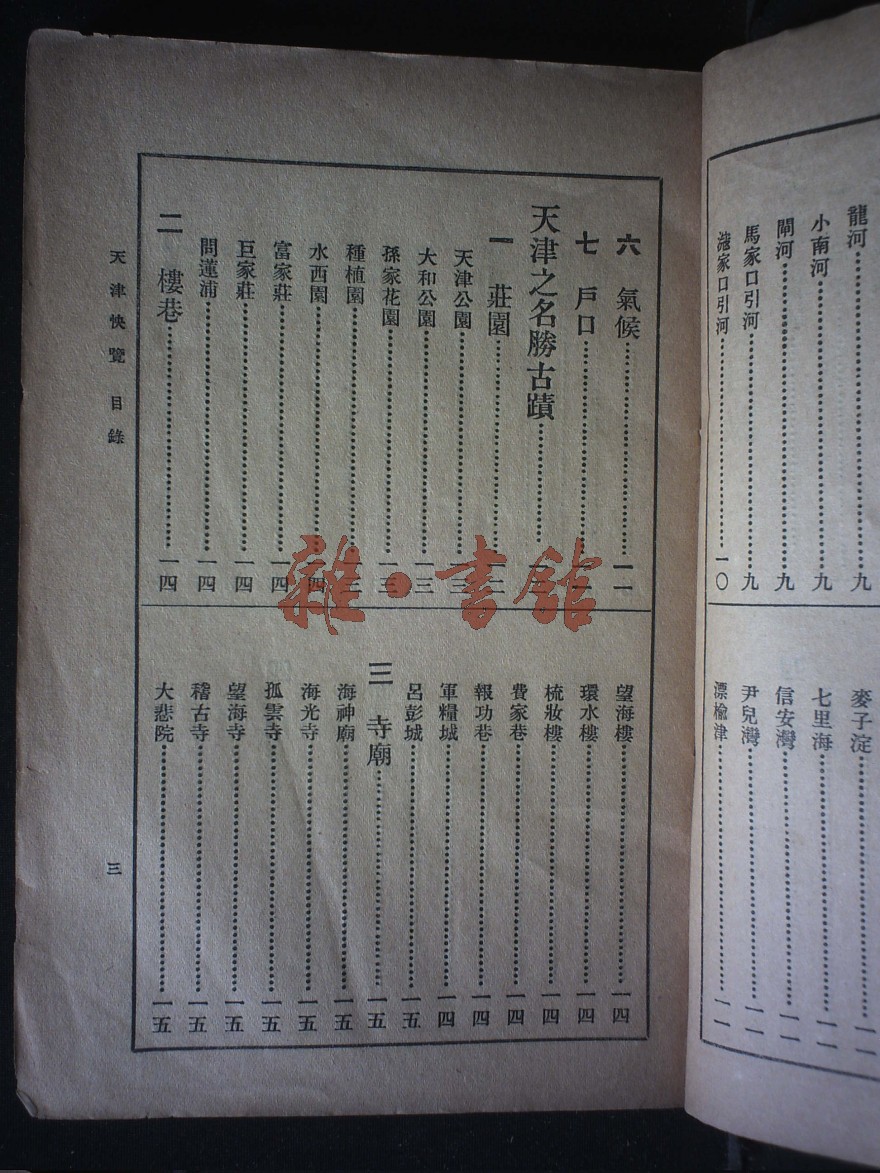 龍河……九
小南河……九
閘河……九
馬家口引河……九
家口引河……一〇
麥子淀……一一
七里海……一一
信安灣……一一
尹兒灣……一一
漂楡津……一一
六 氣候……一一
七 戶口……
天津之名勝古蹟……
一 莊園……
天津公園……一三
大和公園……一三
孫家花園……一三
種植園……
水西園……一四
富家莊……一四
巨家莊……一四
問蓮浦……一四
二 樓巷……一四
望海樓……一四
環水樓……一四
梳妝樓……一四
費家巷……一四
報功巷……一四
軍糧城……一四
呂彭城……一五
三 寺廟……一五
海神廟……一五
海光寺……一五
孤雲寺……一五
望海寺……一五
稽古寺……一五
大悲院……一五
天津快覽 目錄
三
雜·書館